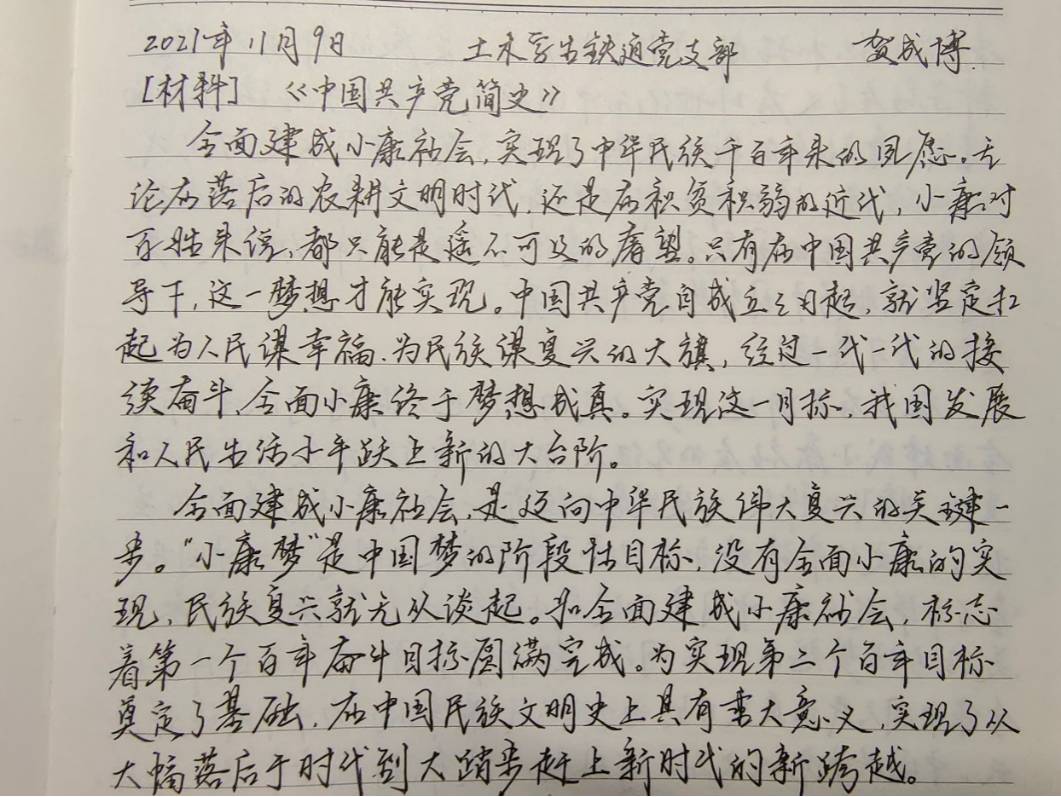 2021年11月9日 土木学古铁通党支部 贺成博
[材料] 《中国共产党简史》
全面建成小康社会，实现了中华民族千百年来的夙愿。无
论在落后的农耕文明时代，还是在积贫积弱的近代，小康对
百姓来说，都只能是遥不可及的奢望。只有在中国共产党的领
导下，这一梦想才能实现。中国共产党自成立之日起，就坚定扛
起为人民谋幸福、为民族谋复兴的大旗，经过一代一代的接
续奋斗，全面小康终于梦想成真。实现这一目标，我国发展
和人民生活水平跃上新的大台阶。
全面建成小康社会，是迈向中华民族伟大复兴的关键一
步。“小康梦”是中国梦的阶段性目标，没有全面小康的实
现，民族复兴就无从谈起。和全面建成小康社会，标志
着第一个百年奋斗目标圆满完成。为实现第二个百年目标
奠定了基础，在中国民族文明史上具有重大意义，实现了从
大幅落后于时代到大踏步赶上新时代的新跨越。